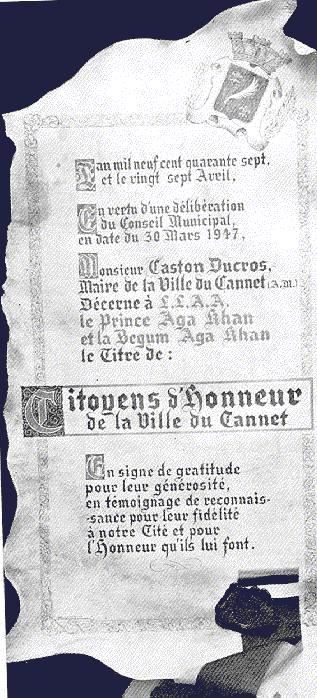 L'an mil neuf cent quarante sept,
et le vingt sept Avril,
En vertu d'une délibération
du Conseil Municipal,
en date du 30 Mars 1947,
Monsieur Gaston Ducros,
Maire de la Ville du Cannet (A.M.)
Décerne à L.L.A.A.
le Prince Aga Khan
et la Begum Aga Khan
le Titre de :
Citoyens d'Honneur
de la Ville du Cannet
En signe de gratitude
pour leur générosité,
en témoignage de reconnais-
-sance pour leur fidélité
à notre Cité et pour
l'Honneur qu'ils lui font.